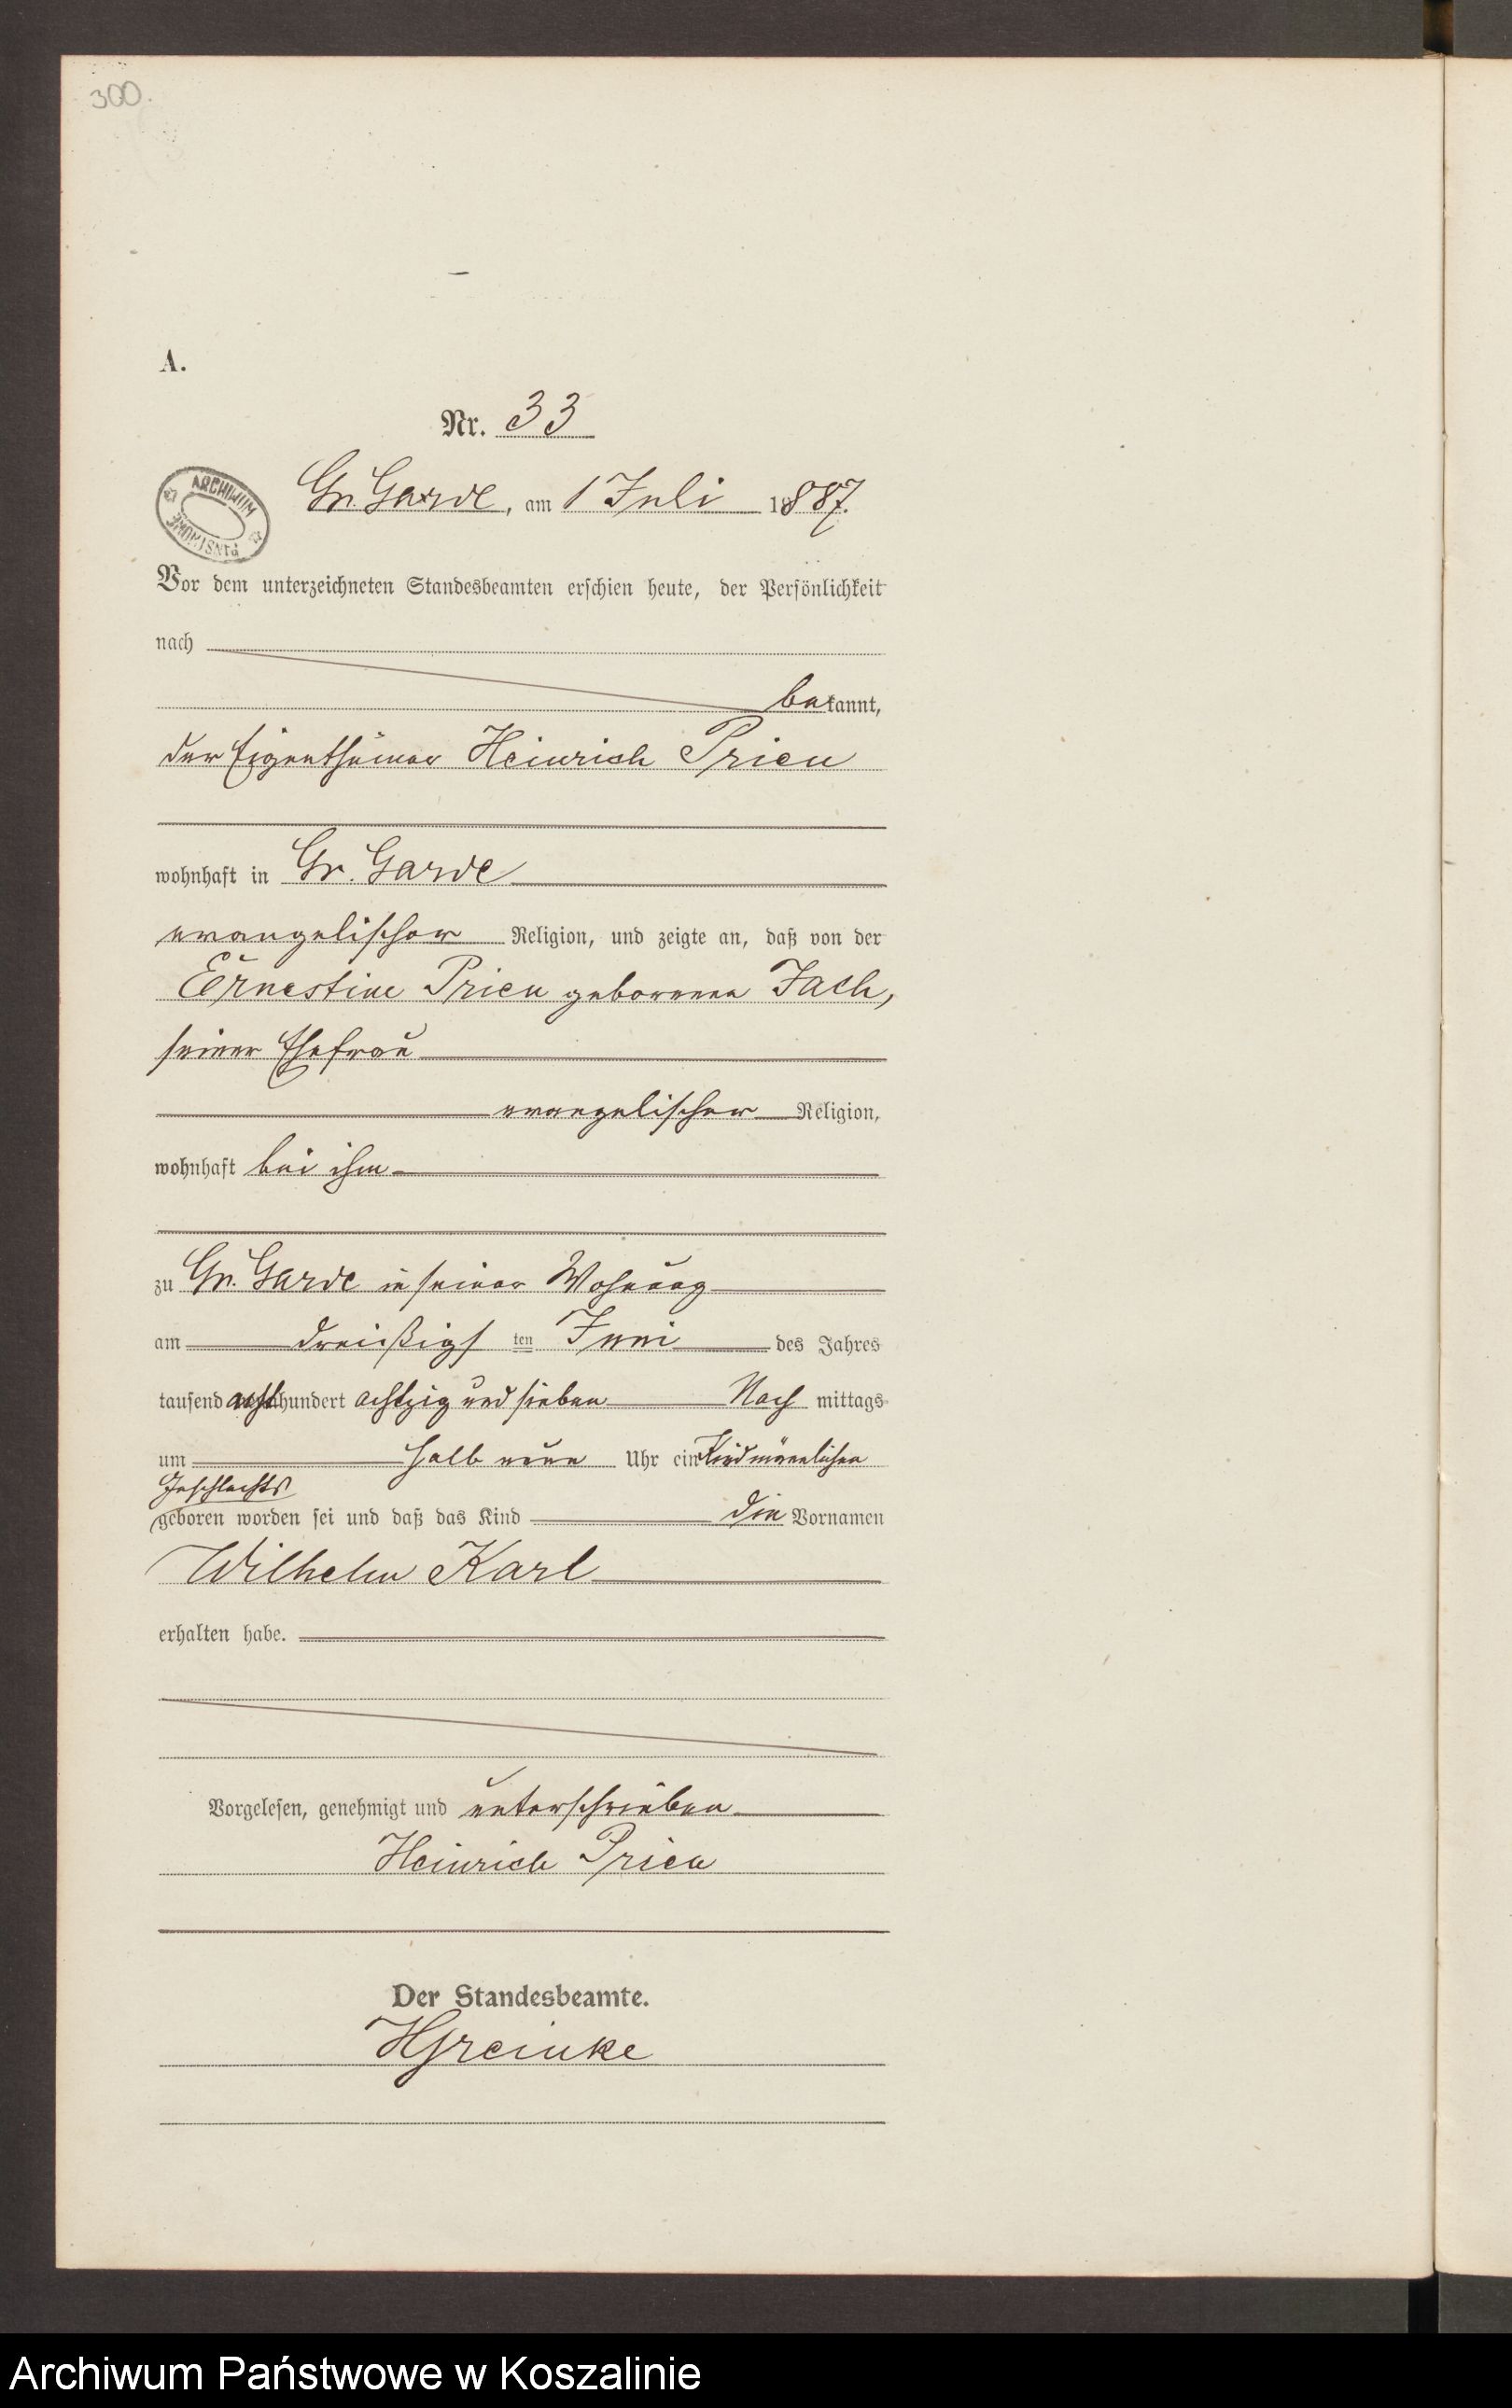 300.
A.
Nr. 33
ARCHIWUM PAŃSTWOWE
Gr. Garde, am 1 Juli 1887.
Vor dem unterzeichneten Standesbeamten erschien heute, der Persönlichkeit
nach
bekannt,
der Eigenthümer Heinrich Prien
wohnhaft in Gr. Garde
evangelischer Religion, und zeigte an, daß von der
Ernestine Prien geborenen Jach,
seiner Ehefrau
evangelischer Religion,
wohnhaft bei ihm
zu Gr. Garde in seiner Wohnung
am dreißigsten Juni des Jahres
tausend achthundert achtzig und sieben Nach mittags
um halb neun Uhr ein Kind männlichen
Geschlechts
geboren worden sei und daß das Kind die Vornamen
Wilhelm Karl
erhalten habe.
Vorgelesen, genehmigt und unterschrieben
Heinrich Prien
Der Standesbeamte.
HGreinke
Archiwum Państwowe w Koszalinie